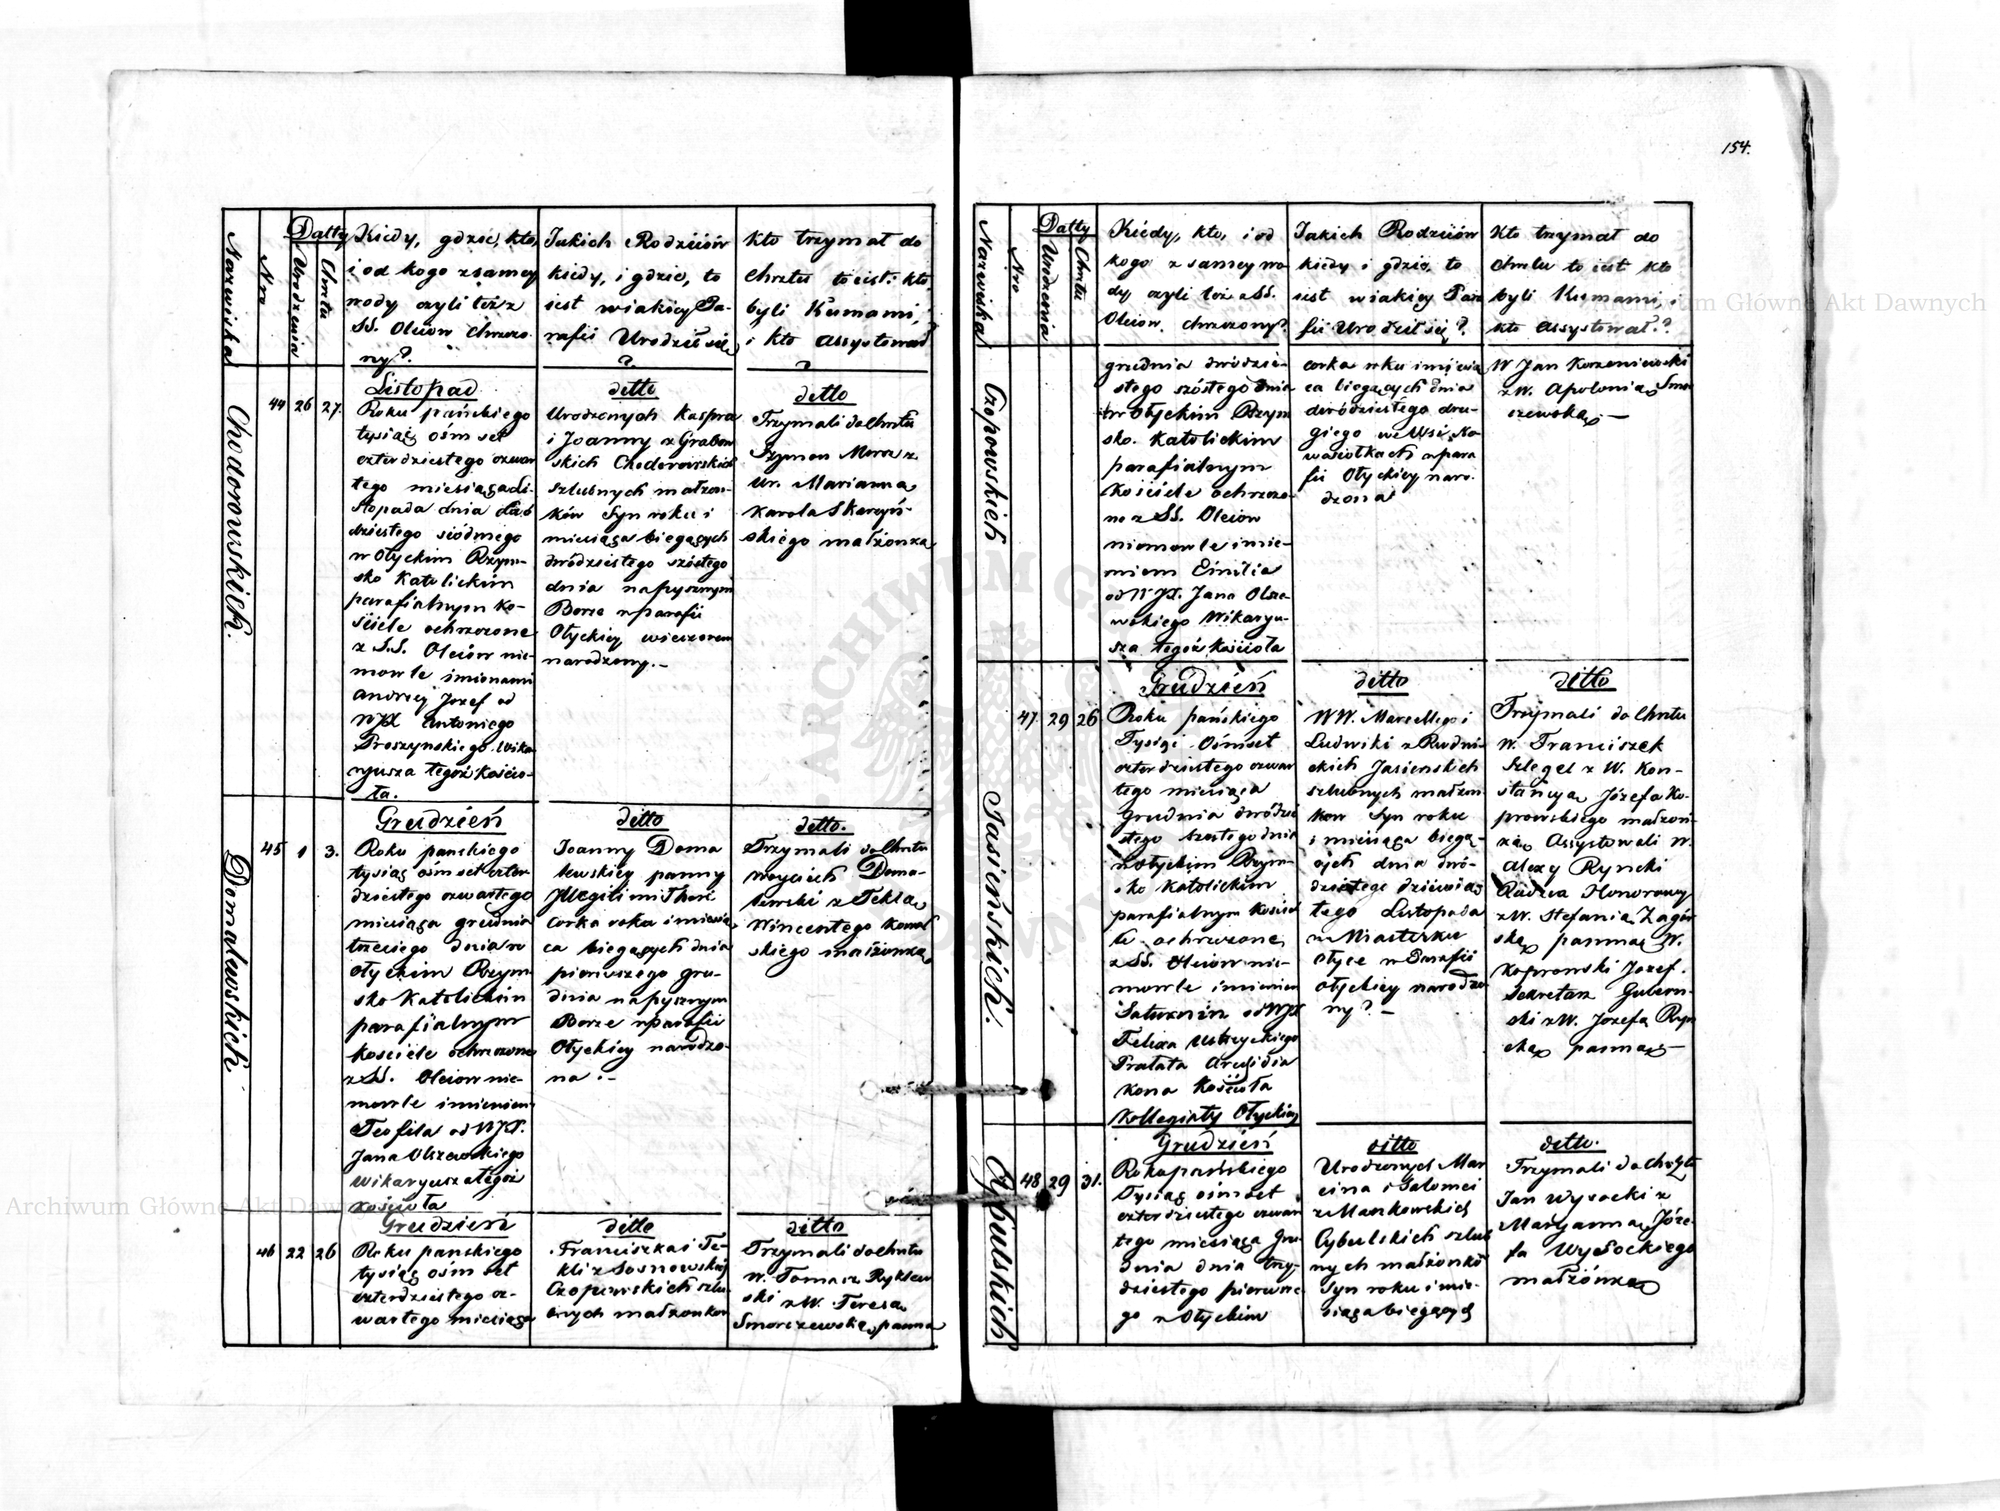 154.
Nazwiska
Nro
Datty
Urodzenia
Chrztu
Kiedy, gdzie, kto,
i od kogo z samey
wody czyli też z
SS. Oleiów chrzczo-
ny?
Jakich Rodziców
kiedy, i gdzie, to
iest w iakiey Pa-
rafii Urodził się
?
Kto trzymał do
Chrztu to iest: kto
byli Kumami,
i kto assystował
?
Chodorowskich.
44 26 27.
Listopad
Roku pańskiego
tysiąc ośm set
czterdziestego czwar
tego miesiąca Li-
stopada dnia dwó
dziestego siódmego
w Ołyckim Rzym-
sko Katolickim
parafialnym Ko-
ściele ochrzczone
z S.S. Oleiów nie-
mowle imionami
Andrzej Jozef od
WJX Antoniego
Proszynskiego Wika
ryusza tegoż Kościo-
ła.
ditto
Urodzonych Kaspra
i Joanny z Grabow
skich Chodorowskich
szlubnych małżon-
ków Syn roku i
miesiąca bieżących
dwódziestego szóstego
dnia na pysznym
Borze w parafii
Ołyckiey wieczorem
narodzony.-
ditto
Trzymali do Chrztu
Szymon Moroz z
Ur. Marianną
Karola Skarzyń-
skiego małżonką
Domalewskich
45 1 3.
Grudzień
Roku panskiego
tysiąc ośm set czter
dziestego czwartego
miesiąca grudnia
trzeciego dnia w
Ołyckim Rzym
sko Katolickim
parafialnym
kościele ochrzczone
z SS. Oleiow nie-
mowle imieniem
Teofila od WJX.
Jana Olszewskiego
Wikaryusza tegoż
kościoła
ditto
Joanny Doma
lewskiey panny
Illegitimi Thori
corka roku i miesią
ca bieżących dnia
pierwszego gru-
dnia na pysznym
Borze w parafii
Ołyckiey narodzo-
na.-
ditto.
Trzymali do Chrztu
Woyciech Doma-
lewski z Teklą
Wincentego Kowal
skiego małżonką
46 22 26
Grudzień
Roku panskiego
tysiąc ośm set
czterdziestego cz-
wartego miesiąca
ditto
Franciszka i Te-
kli z Sosnowskich
Czopowskich szlu-
bnych małżonkow
ditto
Trzymali do Chrztu
W. Tomasz Ryklew
ski z W. Teresą
Smorczewską panną
Nazwiska
Nro
Datty
Urodzenia
Chrztu
Kiedy, kto, i od
kogo z samey wo
dy czyli też z SS.
Oleiów chrzczony?
Jakich Rodziców
kiedy i gdzie, to
iest w iakiey Para
fii Urodził się?
Kto trzymał do
Chrztu to iest kto
byli Kumami, i
kto Assystował??
Czopowskich
grudnia dwódzie-
stego szóstego dnia
w Ołyckim Rzym
sko. Katolickim
parafialnym
Kościele ochrzczo-
no z SS. Oleiow
niemowle imie-
niem Emilia
od WJX. Jana Olsze-
wskiego Wikaryu-
sza tegoż Kościoła
corka roku i miesią
ca bieżących dnia
dwódziestego dru-
giego we Wsi Ko-
wasiołkach w para
fii Ołyckiey naro-
dzona
W Jan Korzeniowski
z W. Apolonią Smor
czewską.—
Jasieńskich.
47. 29 26
Grudzień
Roku pańskiego
Tysiąc Ośmset
czterdziestego czwar
tego miesiąca
Grudnia dwódzie
stego szostego dnia
w Ołyckim Rzym-
sko Katolickim
parafialnym Kościel
le ochrzczone
z SS. Oleiow nie-
mowle imieniem
Saturnin od WJX
Felixa Ustrzyckiego
Prałata Arcyidia
kona Kościoła
Kollegiaty Ołyckiey
ditto
WW. Marcellego i
Ludwiki z Rudni-
ckich Jasienskich
szlubnych małżon
kow Syn roku
i miesiąca bieżą-
cych dnia dwó-
dziestego dziewią
tego Listopada
w Miasteczku
Ołyce w Parafii
Ołyckiey narodzo
ny?-
ditto
Trzymali do Chrztu
W. Franciszek
Szlegel z W. Kon-
stancyą Józefa Ko-
prowskiego małżon-
ką Assystowali W.
Alexy Ryncki
Radzca Honorowy
z W. Stefanią Zagór
ską panną W.
Koprowski Jozef.
Sekretarz Gubern-
ski z W. Jozefą Ryn
cką panną—
Cybulskich
48 29 31.
Grudzień
Roku pańskiego
Tysiąc ośmset
czterdziestego czwar
tego miesiąca Gru
dnia dnia trzy-
dziestego pierwsze-
go w Ołyckim
ditto
Urodzonych Mar
cina i Salomei
z Mankowskich
Cybulskich szlub
nych małżonkó
Syn roku i mie-
siąca bieżących
ditto.
Trzymali do Chrztu
Jan Wysocki z
Maryanną Józe-
fa Wysockiego
małżonką
ARCHIWUM GŁÓWNE AKT DAWNYCH
Archiwum Główne Akt Dawnych
Archiwum Główne Akt Dawnych